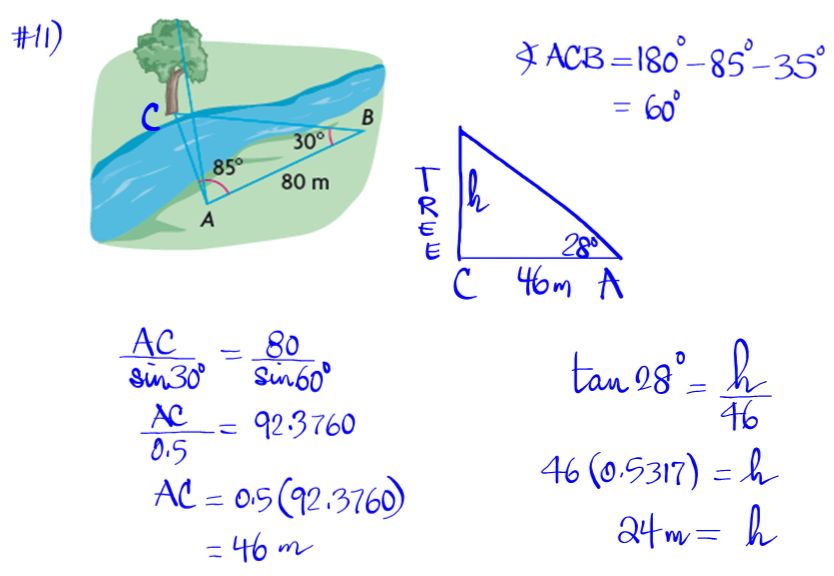 #11)
∡ ACB = 180° - 85° - 35°
= 60°
C
B
30°
85°
80 m
A
TREE
h
28°
C 46m A
AC/sin30° = 80/sin60°
AC/0.5 = 92.3760
AC = 0.5(92.3760)
= 46 m
tan 28° = h/46
46(0.5317) = h
24m = h